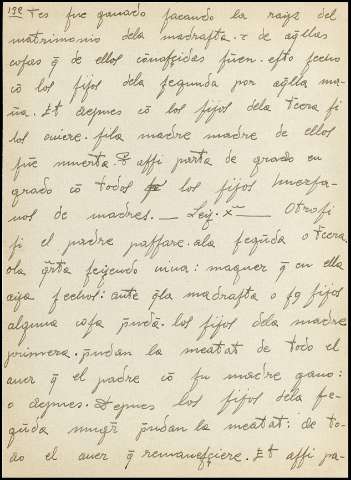 122 tes fue ganado sacando la rayz del
matrimonio dela madrasta. τ de aq̃llas
cosas q̃ de ellos cõnosçidas fuen. esto fecho
cõ los fijos dela segunda por aq̃lla ma-
ña. Et depues cõ los fijos dela t̃cera si
los ouiere. si la madre madre de ellos
fue muerta. E assi parta de grado en
grado cõ todos los fijos huerfa-
nos de madres. — Ley. x̃ — Otrosi
si el padre passare. ala segũda o t̃cera.
o la q̃rta seyendo uiua: maguer q̃ en ella
aya fechos: ante q̃ la madrasta o sq̃ fijos
alguna cosa p̃nda. los fijos dela madre
primera. p̃ndan la meatat de todo el
auer q̃ el padre cõ su madre gano:
o depues. Depues los fijos dela se-
gũda mug̃r p̃ndan la meatat: de to-
do el auer q̃ remanesçiere. Et assi pa-